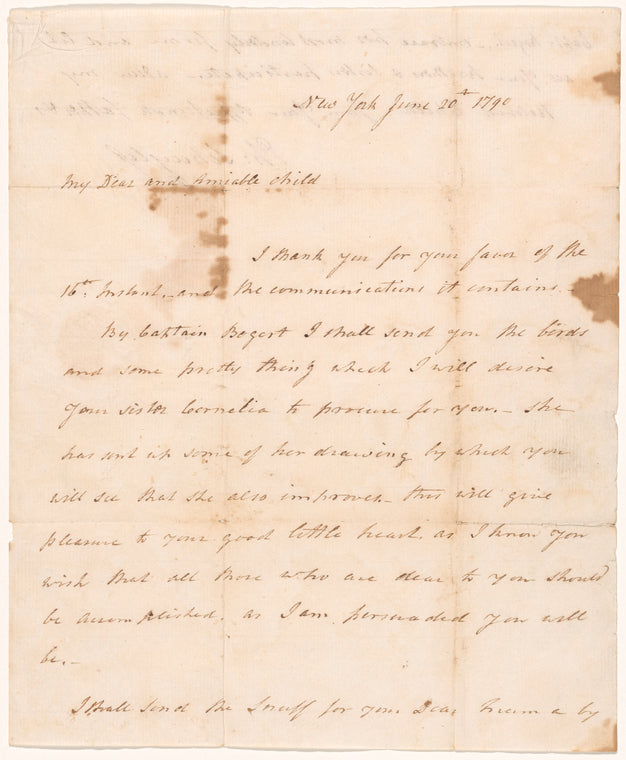 New York June 20th 1790
My Dear and Amiable child
I thank you for your favor of the
16th. Instant, and the communications it contains.–
By Captain Bogert I shall send you the birds
and some pretty thing which I will desire
your sister Cornelia to procure for you.– She
has sent up some of her drawing by which you
will see that she also improves – this will give
pleasure to your good little heart, as I know you
wish that all those who are dear to you should
be accomplished. as I am persuaded you will
be.–
I shall send the Snuff for your Dear by